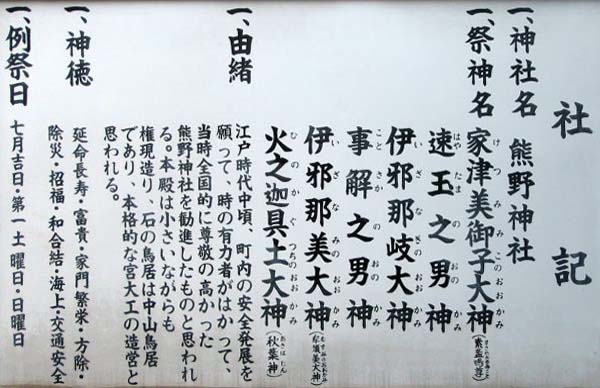 社記
一、神社名 熊野神社
一、祭神名 家津美御子大神（素盞嗚尊）
速玉之男神
伊邪那岐大神
事解之男神
伊邪那美大神
火之迦具土大神（秋葉神）
一、由緒
江戸時代中頃、町内の安全発展を
願って、時の有力者がはかって、
当時全国的に尊敬の高かった
熊野神社を勧進したものと思われ
る。本殿は小さいながらも
権現造り、石の鳥居は中山鳥居
であり、本格的な宮大工の造営と
思われる。
一、神徳
延命長寿・富貴・家門繁栄・方除・
除災・招福・和合結・海上・交通安全
一、例祭日 七月吉日・第一土曜日・日曜日